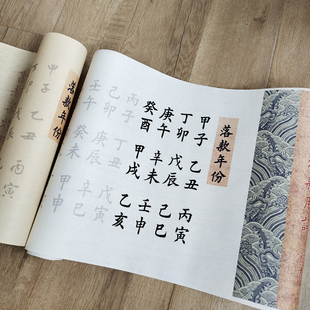 落款年份
甲子 乙丑 丙寅
丁卯 戊辰 己巳
庚午 辛未 壬申
癸酉 甲戌 乙亥
丙子 丁丑 戊寅
己卯 庚辰 辛巳
壬午 癸未 甲申
落款年份
甲子 乙丑 丙寅